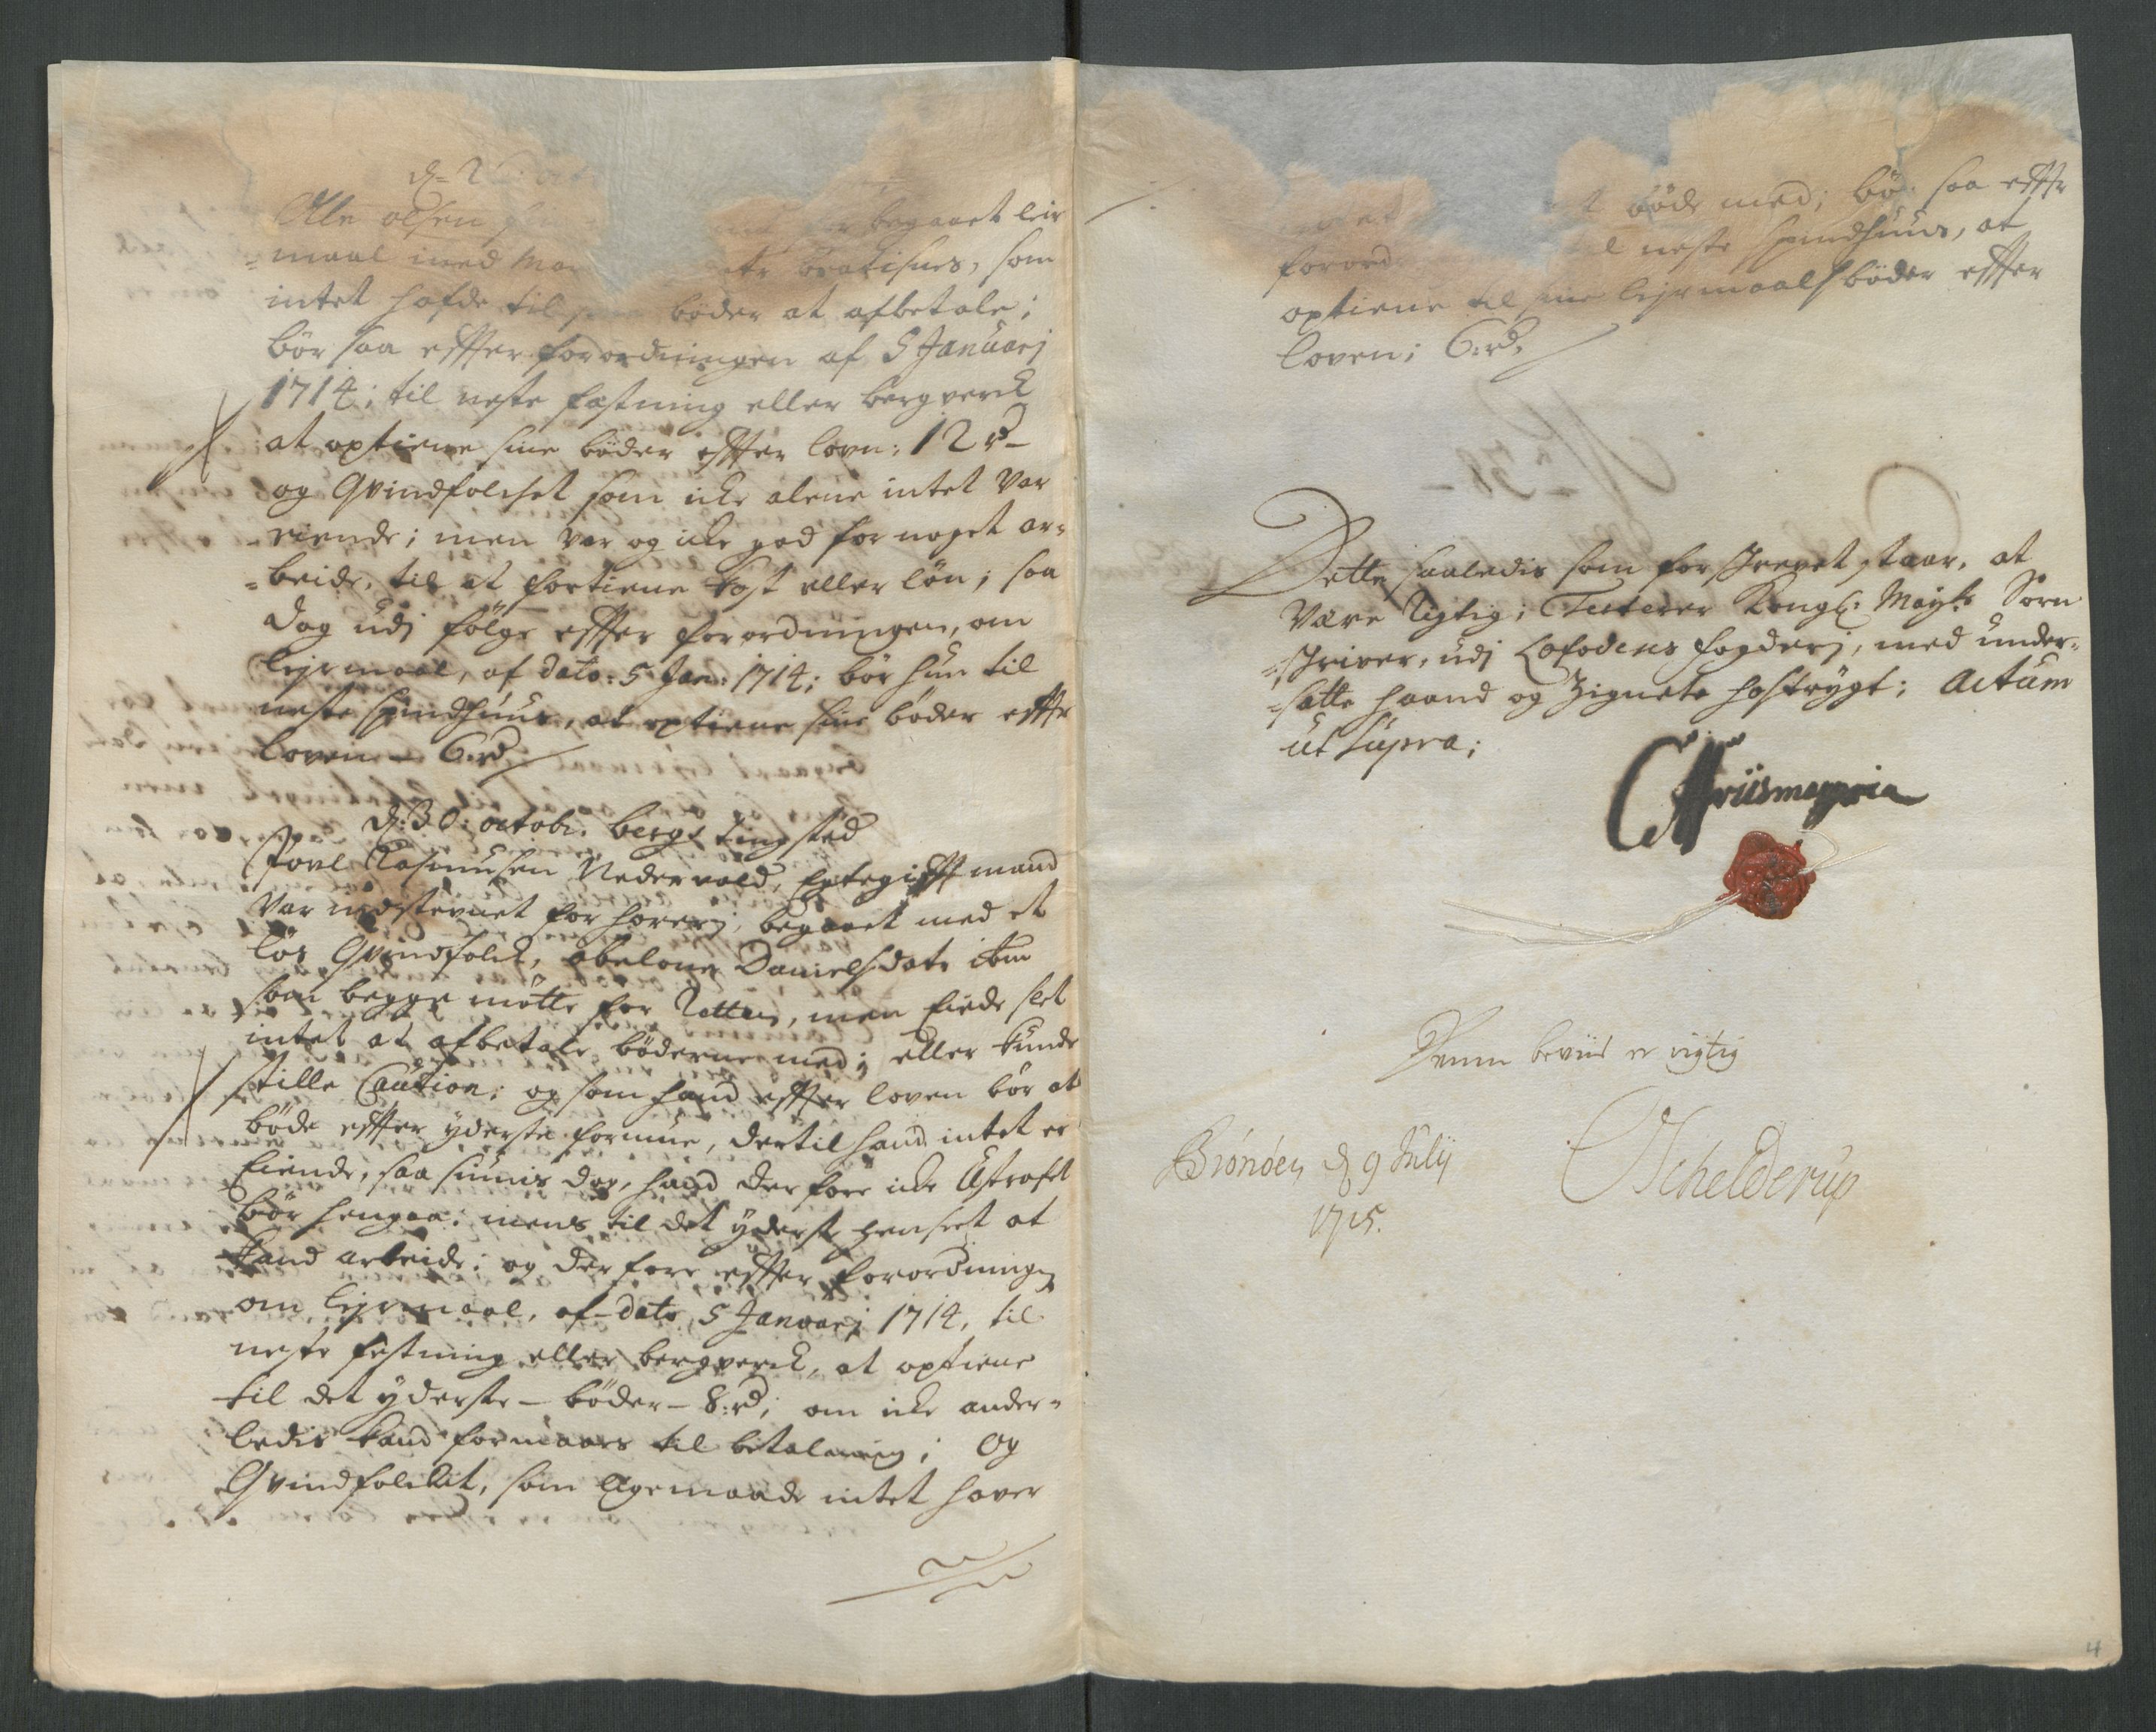 d: 2
Ole olsen begaaet leir
=maal med Mar bratisnes, som
intet hafde til bøder at afbetale;
bør saa effter forordningen af 5 Januarj
1714; til neste fæstning eller bergverck
at optiene sine bøder effter lovn: 12 rd
og Qvindfolchet som icke alene intet var
eiende; men var og icke god for noget ar=
=beide, til at fortiene kost eller løn; saa
dog udj følge effter forordningen, om
lejrmaal, af dato: 5 Jan: 1714; bør hun til
neste spindhuus, at optiene sine bøder effter
loven - 6 rd
d: 30: octobr. bergs tingsted
Povl Rasmusen Nedervold, Egtegifft mand
var indstevnet for horerj, begaaet med et
løs Qvindfolch, abelone Danielsdatr ibm
som begge møtte for Retten, men Eiede slet
intet at afbetale bøderne med; eller kunde
stille Caution; og som hand effter loven bør at
bøde effter yderste formue, dertil hand intet er
Eiende, saa siunis dog, hand der fore icke Ustrafet
bør hengaa; mens til det yderst henseet at
hand arbeide; og der fore effter forordningen
om lejrmaal, af dato 5 Januarj 1714, til
neste festning eller bergverck, at optiene
til det yderste - bøder - 8 rd; om icke ander=
ledis kand formaaes til betalning; Og
Qvindfolchet, som ligemaade intet haver
bøde med; bør saa effter
forord neste spindhuus, at
optiene til sine lejrmaals bøder effter
loven; 6 rd,
Dette saaledis som forskrevet staar, at
være Rigtig; Testerer Kongl: Mayts Sorn
=skriver, udj Lofodens fogderj, med under=
=satte haand og Zignete hostrygt; Actum
ut supra;
mappria
Denne beviis er rigtig
Brönöen d 9 Julij
1715.
Schelderup
4